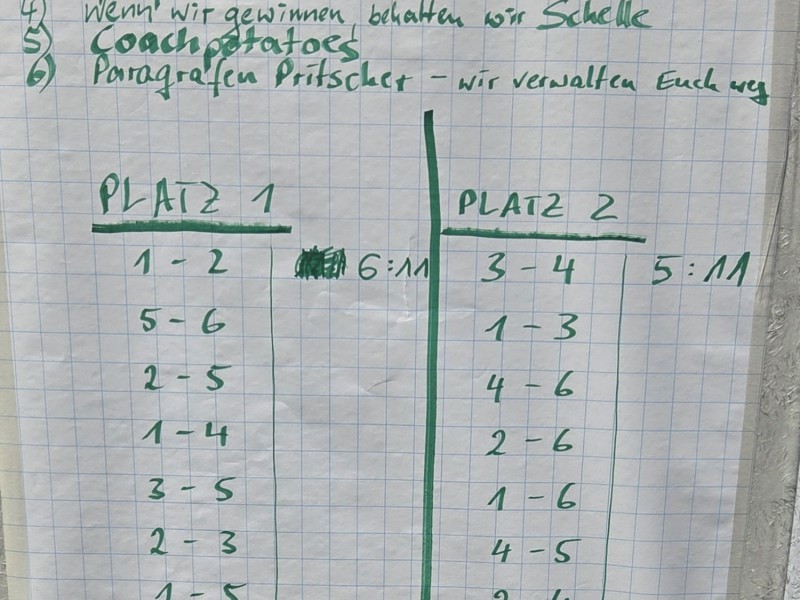 4) Wenn wir gewinnen, behalten wir Schelle
5) Coachpotatoes
6) Paragrafen Pritscher - wir verwalten Euch weg
PLATZ 1
1 - 2 6:11
5 - 6
2 - 5
1 - 4
3 - 5
2 - 3
1 - 5
PLATZ 2
3 - 4 5:11
1 - 3
4 - 6
2 - 6
1 - 6
4 - 5